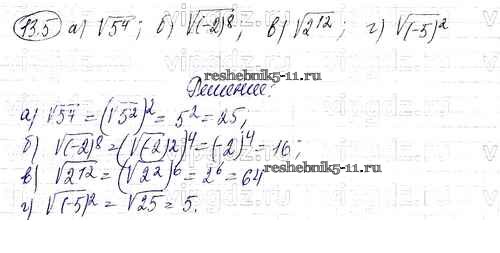 13.5 а) √5⁴; б) √(-2)⁸; в) √2¹²; г) √(-5)²
reshebnik5-11.ru
Решение:
а) √5⁴ = (√5²)² = 5² = 25;
б) √(-2)⁸ = (√(-2)2)⁴ = (-2)⁴ = 16;
в) √2¹² = (√2²)⁶ = 2⁶ = 64
reshebnik5-11.ru
г) √(-5)² = √25 = 5.